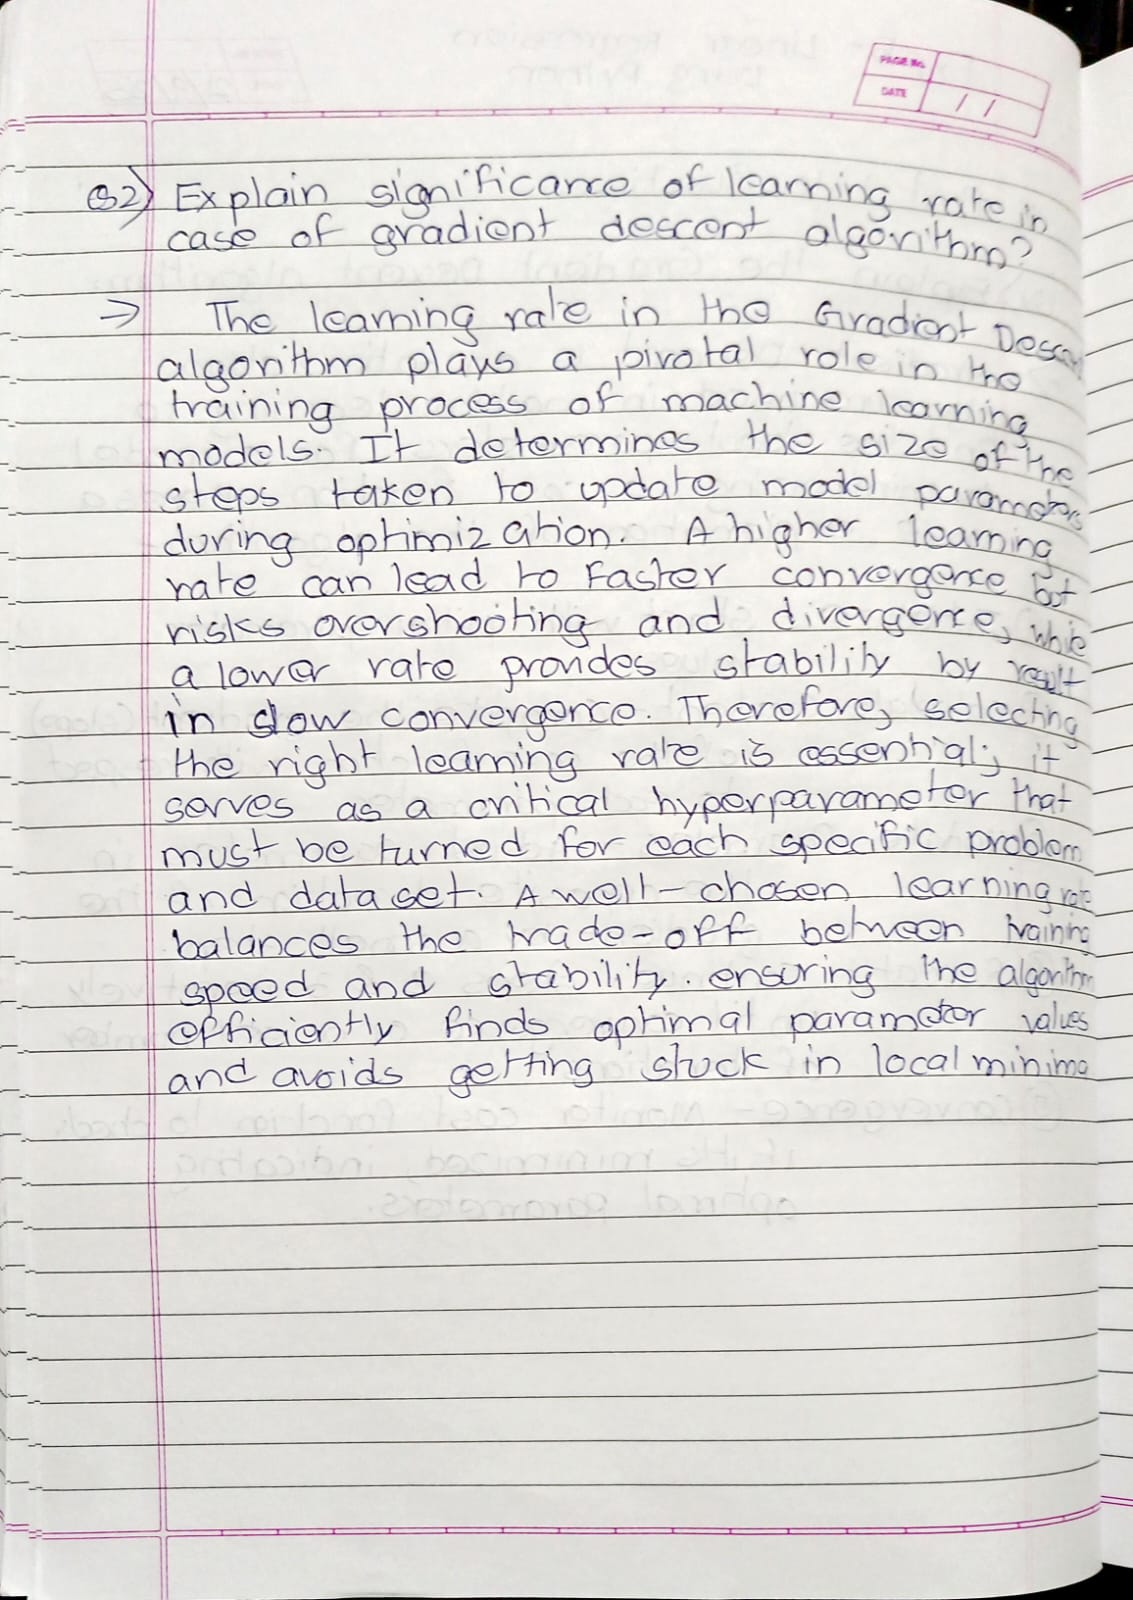 PAGE No.
DATE / /
Q2) Explain significance of learning rate in
case of gradient descent algorithm?
→ The learning rate in the Gradient Descent
algorithm plays a pivotal role in the
training process of machine learning
models. It determines the size of the
steps taken to update model parameters
during optimization. A higher learning
rate can lead to Faster convergence but
risks overshooting and divergence, while
a lower rate provides stability by result
in slow convergence. Therefore, selecting
the right learning rate is essential; it
serves as a critical hyperparameter that
must be turned for each specific problem
and dataset. A well-chosen learning rate
balances the trade-off between training
speed and stability. ensuring the algorithm
efficiently finds optimal parameter values
and avoids getting stuck in local minima